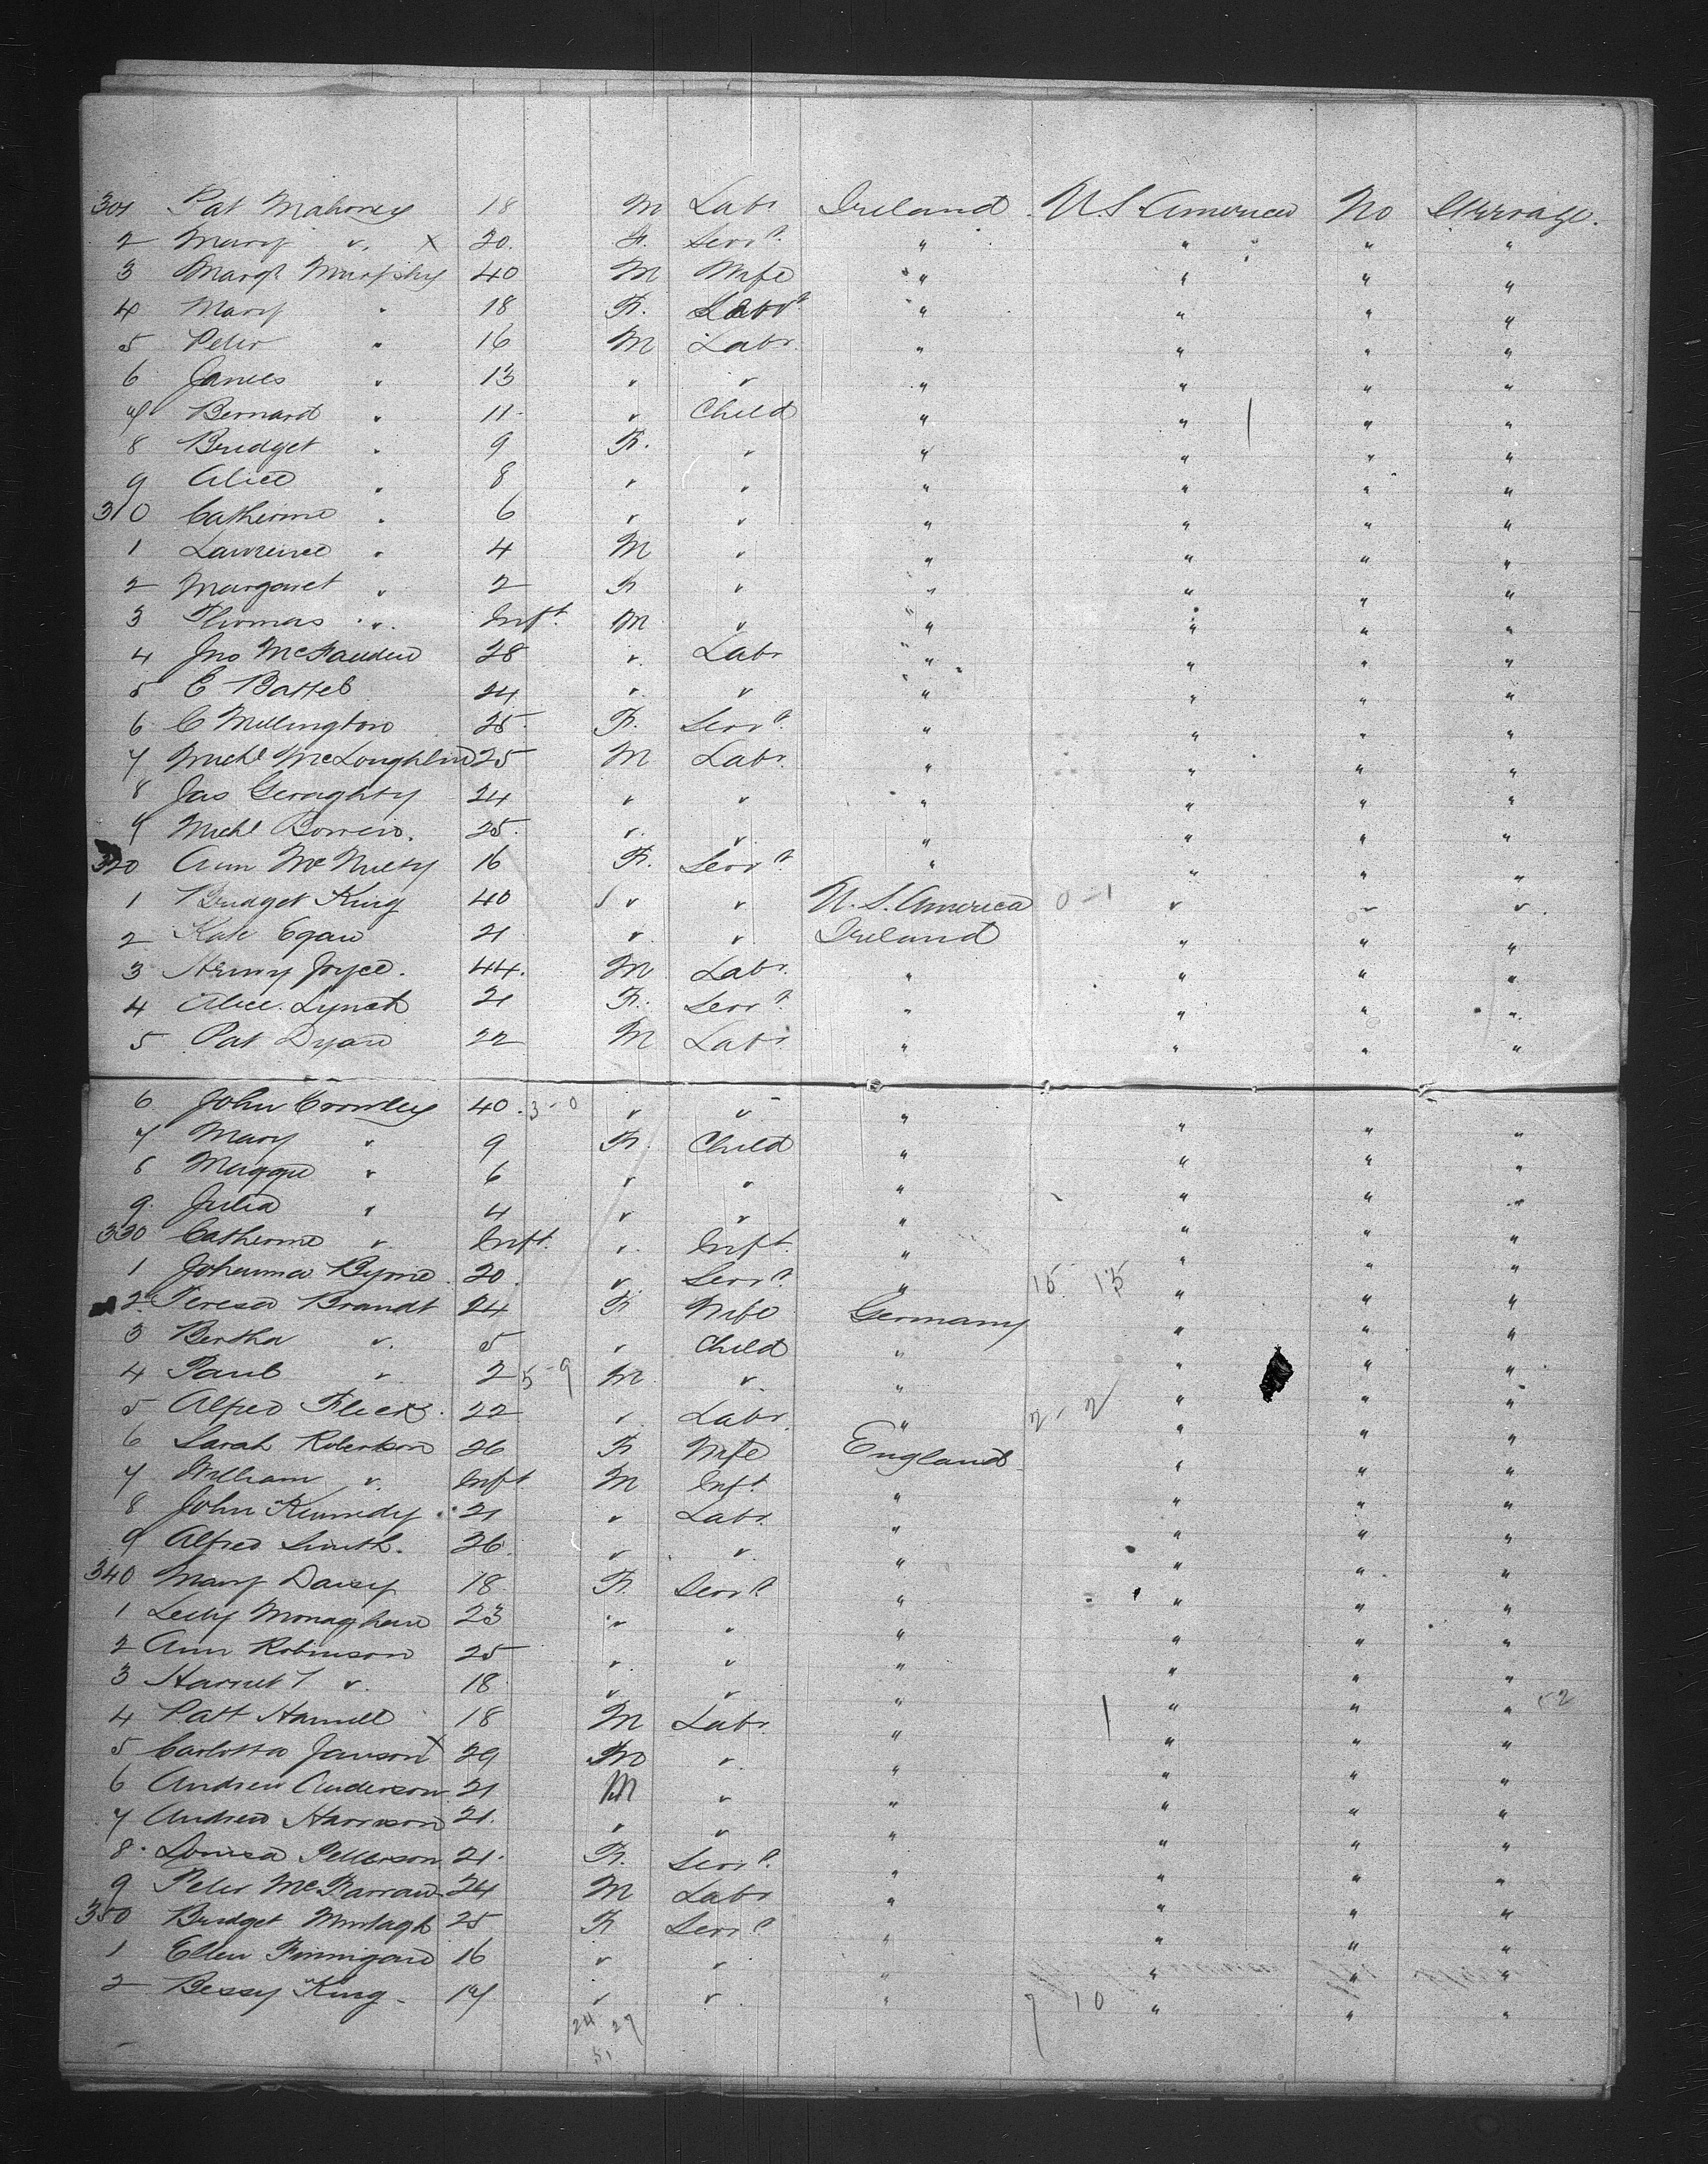 301 Pat Mahoney 18 M Labr Ireland U.S. America No Steerage.
2 Mary " X 20. F. Servt " " " "
3 Margt Murphy 40 M Wife " " " "
4 Mary " 18 F. Servt " " " "
5 Peter " 16 M Labr. " " " "
6 James " 13 " " " " " "
7 Bernard " 11. " Child " " " "
8 Bridget " 9 F. " " " " "
9 Alice " 8 " " " " " "
310 Catherine " 6 " " " " " "
1 Lawrence " 4 M " " " " "
2 Margaret " 2 F " " " " "
3 Thomas " Inft. M " " " " "
4 Jno McFadden 28 " Labr " " " "
5 C 24 " " " " " "
6 C Millington 25. F. Servt " " " "
7 Michl McLoughlin 25 M Labr. " " " "
8 Jas Geraghty 24 " " " " " "
9 Michl 25. " " " " " "
320 Ann McNulty 16 F. Servt " " " "
1 Bridget King 40 " " U.S. America 0-1 " " "
2 Kate Egan 21 " " Ireland " " "
3 Henry Joyce. 44. M Labr. " " " "
4 Alice Lynch 21 F. Servt " " " "
5 Pat 22 M Labr " " " "
6 John Crowley 40. 3-0 " " " " " "
7 Mary " 9 F. Child " " " "
8 Maggie " 6 " " " " " "
9. Julia " 4 " " " " " "
330 Catherine " Inft. " Inft. " " " "
1 Johanna Byrne 20. " Servt " 15 15 " " "
2 Teresa Brandt 24 F Wife Germany " " "
3 Bertha " 5 " Child " " " "
4 Paul " 2 5-9 M " " " " "
5 Alfred Fleck 22 " Labr " 2-2 " " "
6 Sarah Robertson 26 F Wife England " " "
7 William " Inft M Inft " " " "
8 John Kennedy 21 " Labr. " " " "
9 Alfred Smith. 26. " " " " " "
340 Mary Daisy 18 F. Servt " " " "
1 Monaghan 23 " " " " " "
2 Ann Robinson 25 " " " " " "
3 Harriet " 18 " " " " " "
4 Patt 18 M Labr. " " " "
5 Carlotta Janson X 29 " " " " "
6 Andrew Anderson 21 M " " " " "
7 Andrew Harrison 21. " " " " " "
8. Louisa Petterson 21. F. Servt " " " "
9 Peter 24 M Labr " " " "
350 Bridget Murtagh 25 F Servt " " " "
1 Ellen Finnigan 16 " " " " " "
2 Bessy King. 17 " " " 7 10 " " "
24 27
51